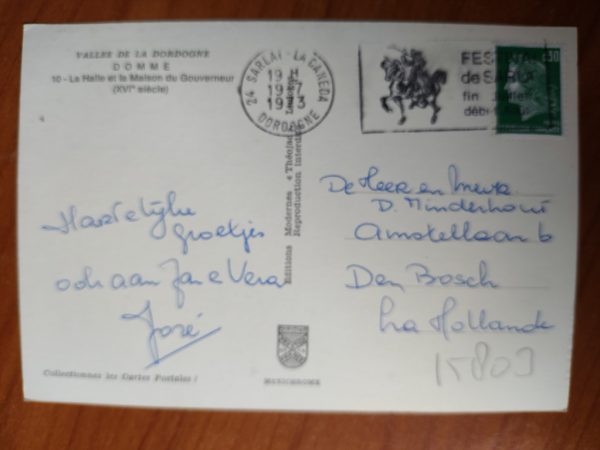 VALLEE DE LA DORDOGNE
DOMME
10 - La Halle et la Maison du Gouverneur
(XVIe siècle)
24 SARLAT - LA CANEDA
19 H
1973
DORDOGNE
FESTIVAL
de SARLAT
fin
0,30
Editions Modernes Théojac
Reproduction interdite
Hartelijke
groetjes
ook aan Jan e Vera
José
De Heer en Mevr.
D. Minderhout
Amstellaan 6
Den Bosch
La Hollande
15803
Collectionnez les Cartes Postales !
MEXICHROME